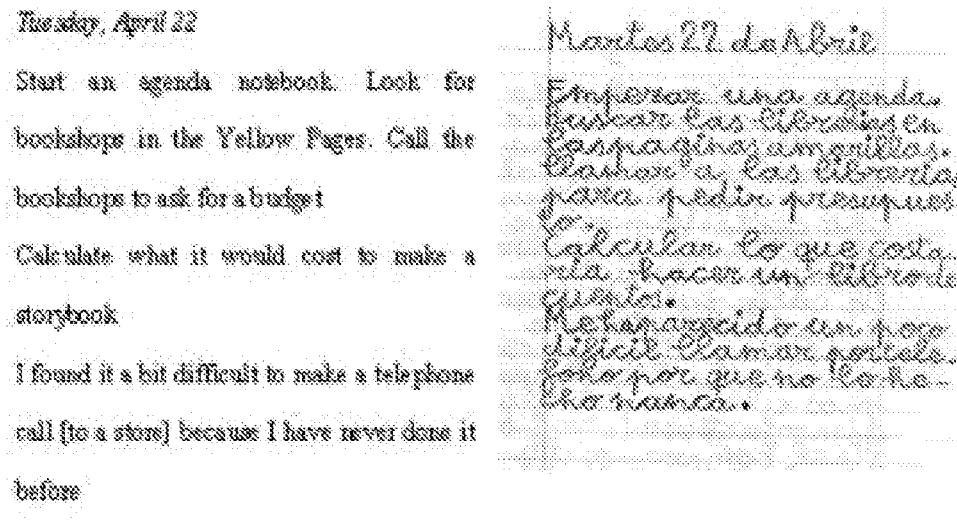 Tuesday, April 22
Start an agenda notebook. Look for
bookshops in the Yellow Pages. Call the
bookshops to ask for a budget
Calculate what it would cost to make a
storybook
I found it a bit difficult to make a telephone
call [to a store] because I have never done it
before
Martes 22 de Abril
Empezar una agenda.
Buscar las librerias en
las paginas amarillas.
llamar a las librerias
para pedir presupues
to.
Calcular lo que costa
ria hacer un libro de
cuentos.
Me ha parecido un poco
dificil llamar por tele-
fono por que no lo he-
cho nunca.